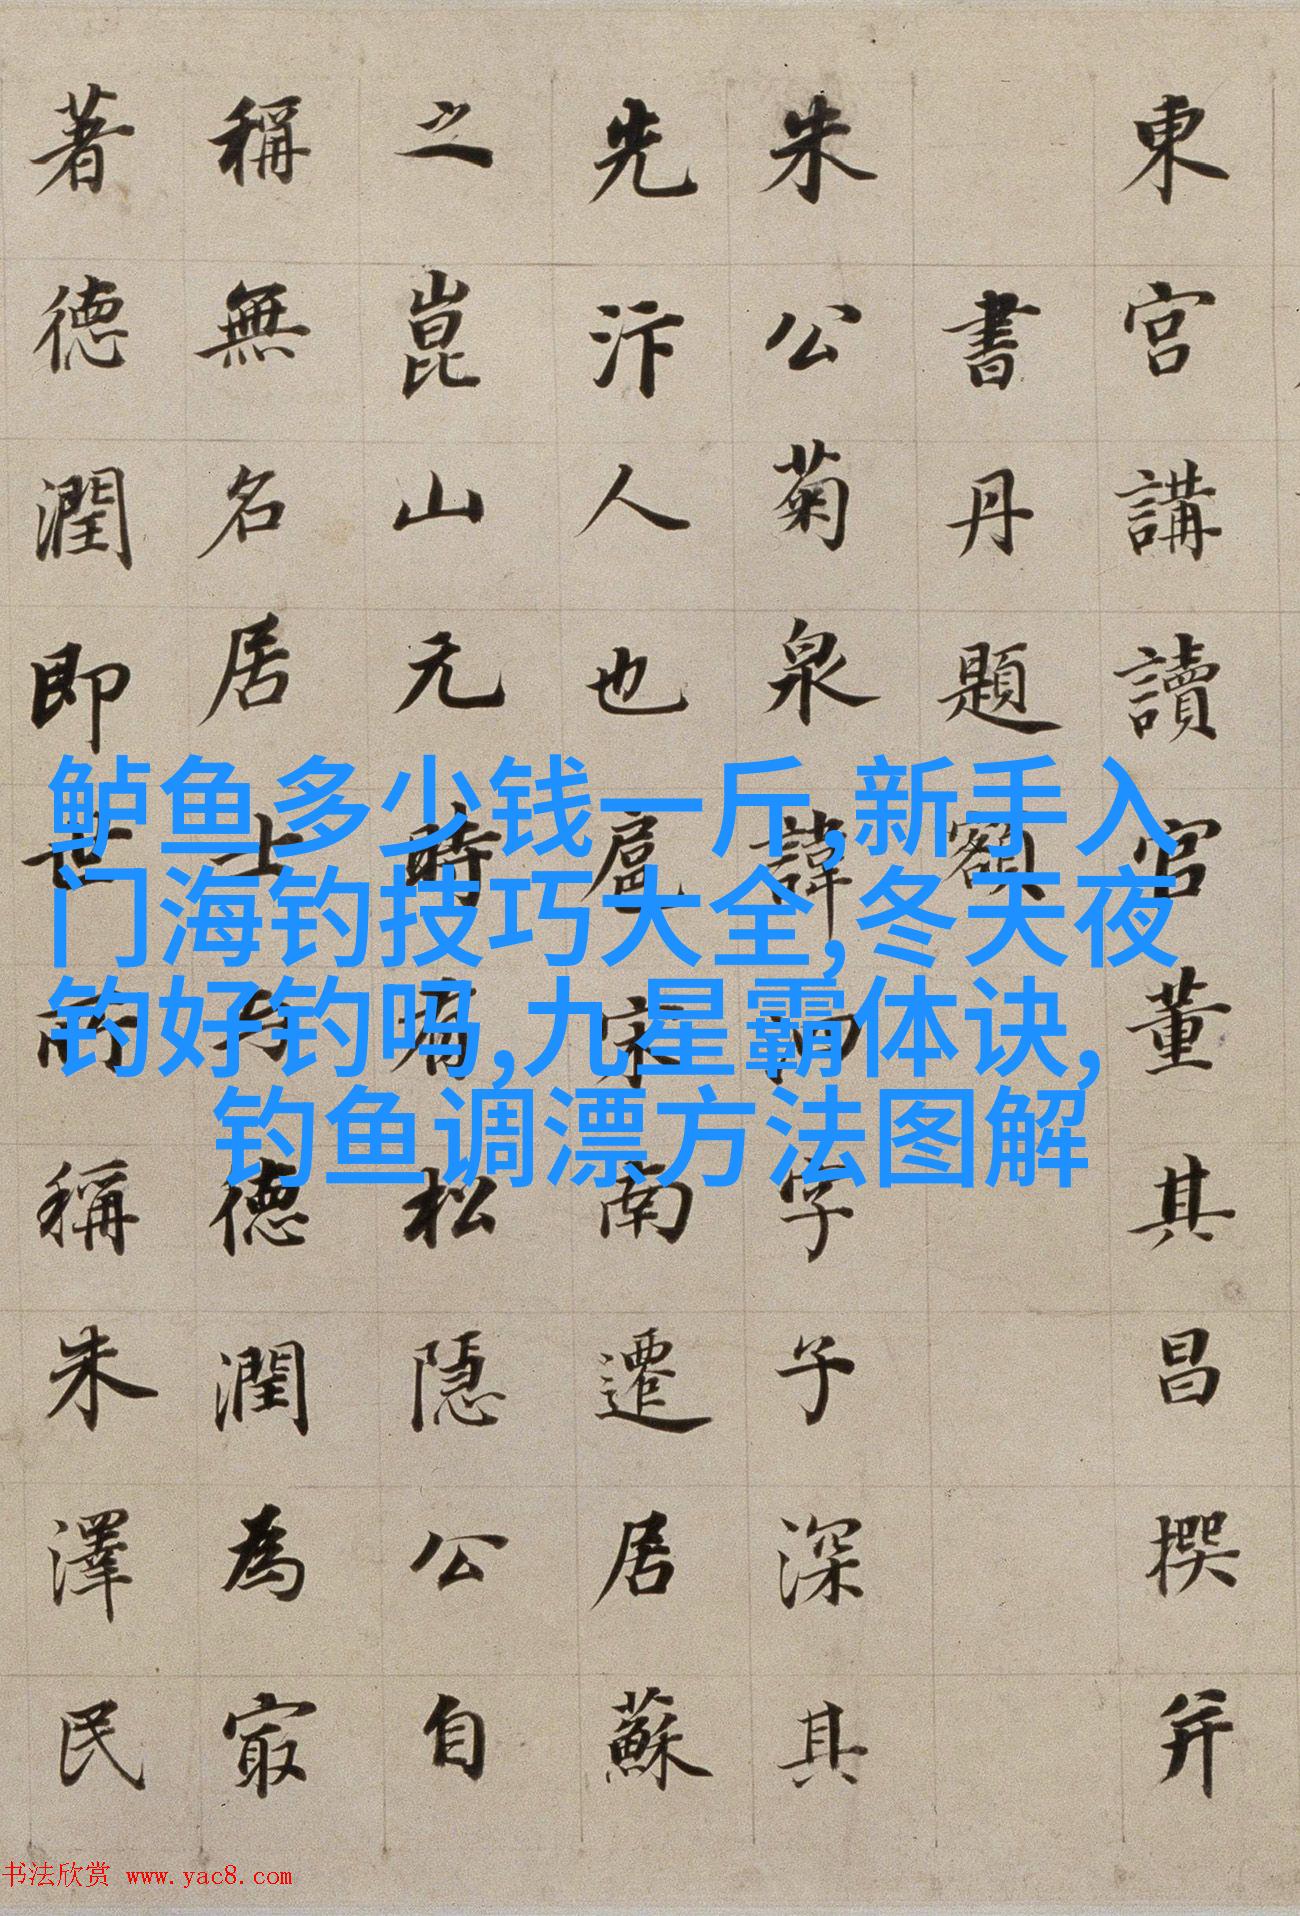 東宮講讀官董其昌撰并
書丹題額
朱公菊泉諱字子深其
先汴人也扈宋南遷居蘇
之崑山元時有松隱公自
稱無名居士与德潤為㝡
著德潤即世所稱朱澤民
鲈鱼多少钱一斤,新手入
门海钓技巧大全,冬天夜
钓好钓吗,九星霸体诀,
钓鱼调漂方法图解
书法欣赏 www.yac8.com